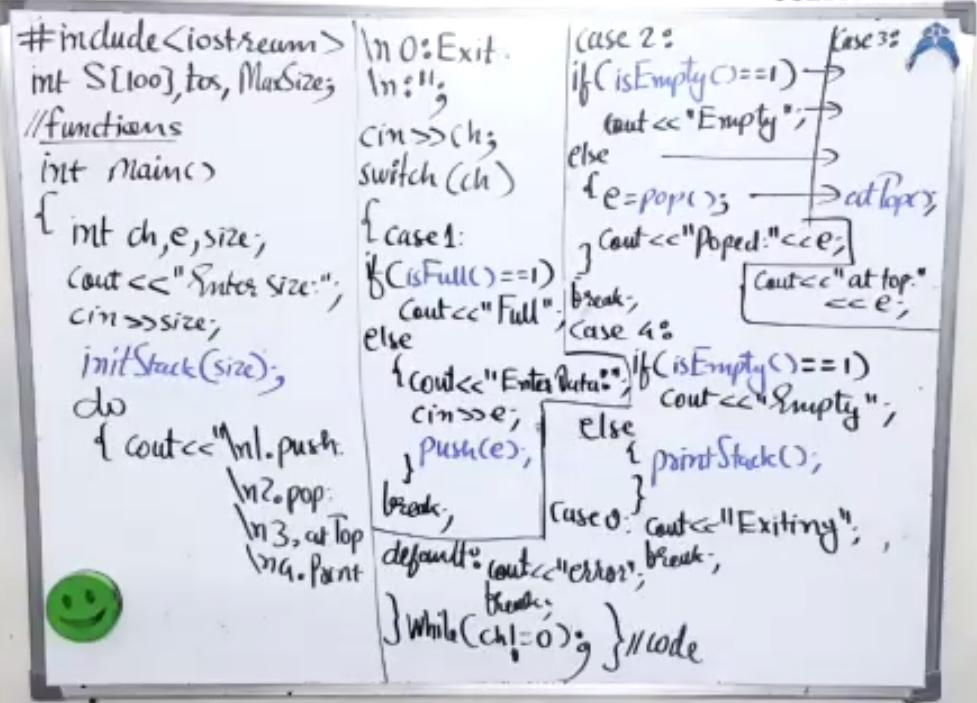 #include<iostream>
int S[100],tos, MaxSize;
//functions
int Main()
{
int ch,e,size;
cout<<"Enter size:";
cin>>size;
initStack(size);
do
{ cout<<"\n1.push.
\n2.pop.
\n3.atTop
\n4.Print
\n0:Exit.
\n:";
cin>>ch;
switch(ch)
{ case1:
if(isFull()==1)
cout<<"Full";
else
{cout<<"Enter Data:";
cin>>e;
push(e);
}
break;
case 2:
if(isEmpty()==1)
cout<<"Empty";
else
{ e=pop();
cout<<"Poped:"<<e;
}
break;
Case 3:
atTop();
Cout<<"at top:"
<<e;
case 4:
if(isEmpty()==1)
cout<<"Empty";
else
{ printStack();
}
Case0: cout<<"Exiting";
break;
default: cout<<"error";
break;
} While(ch!=0); } //code